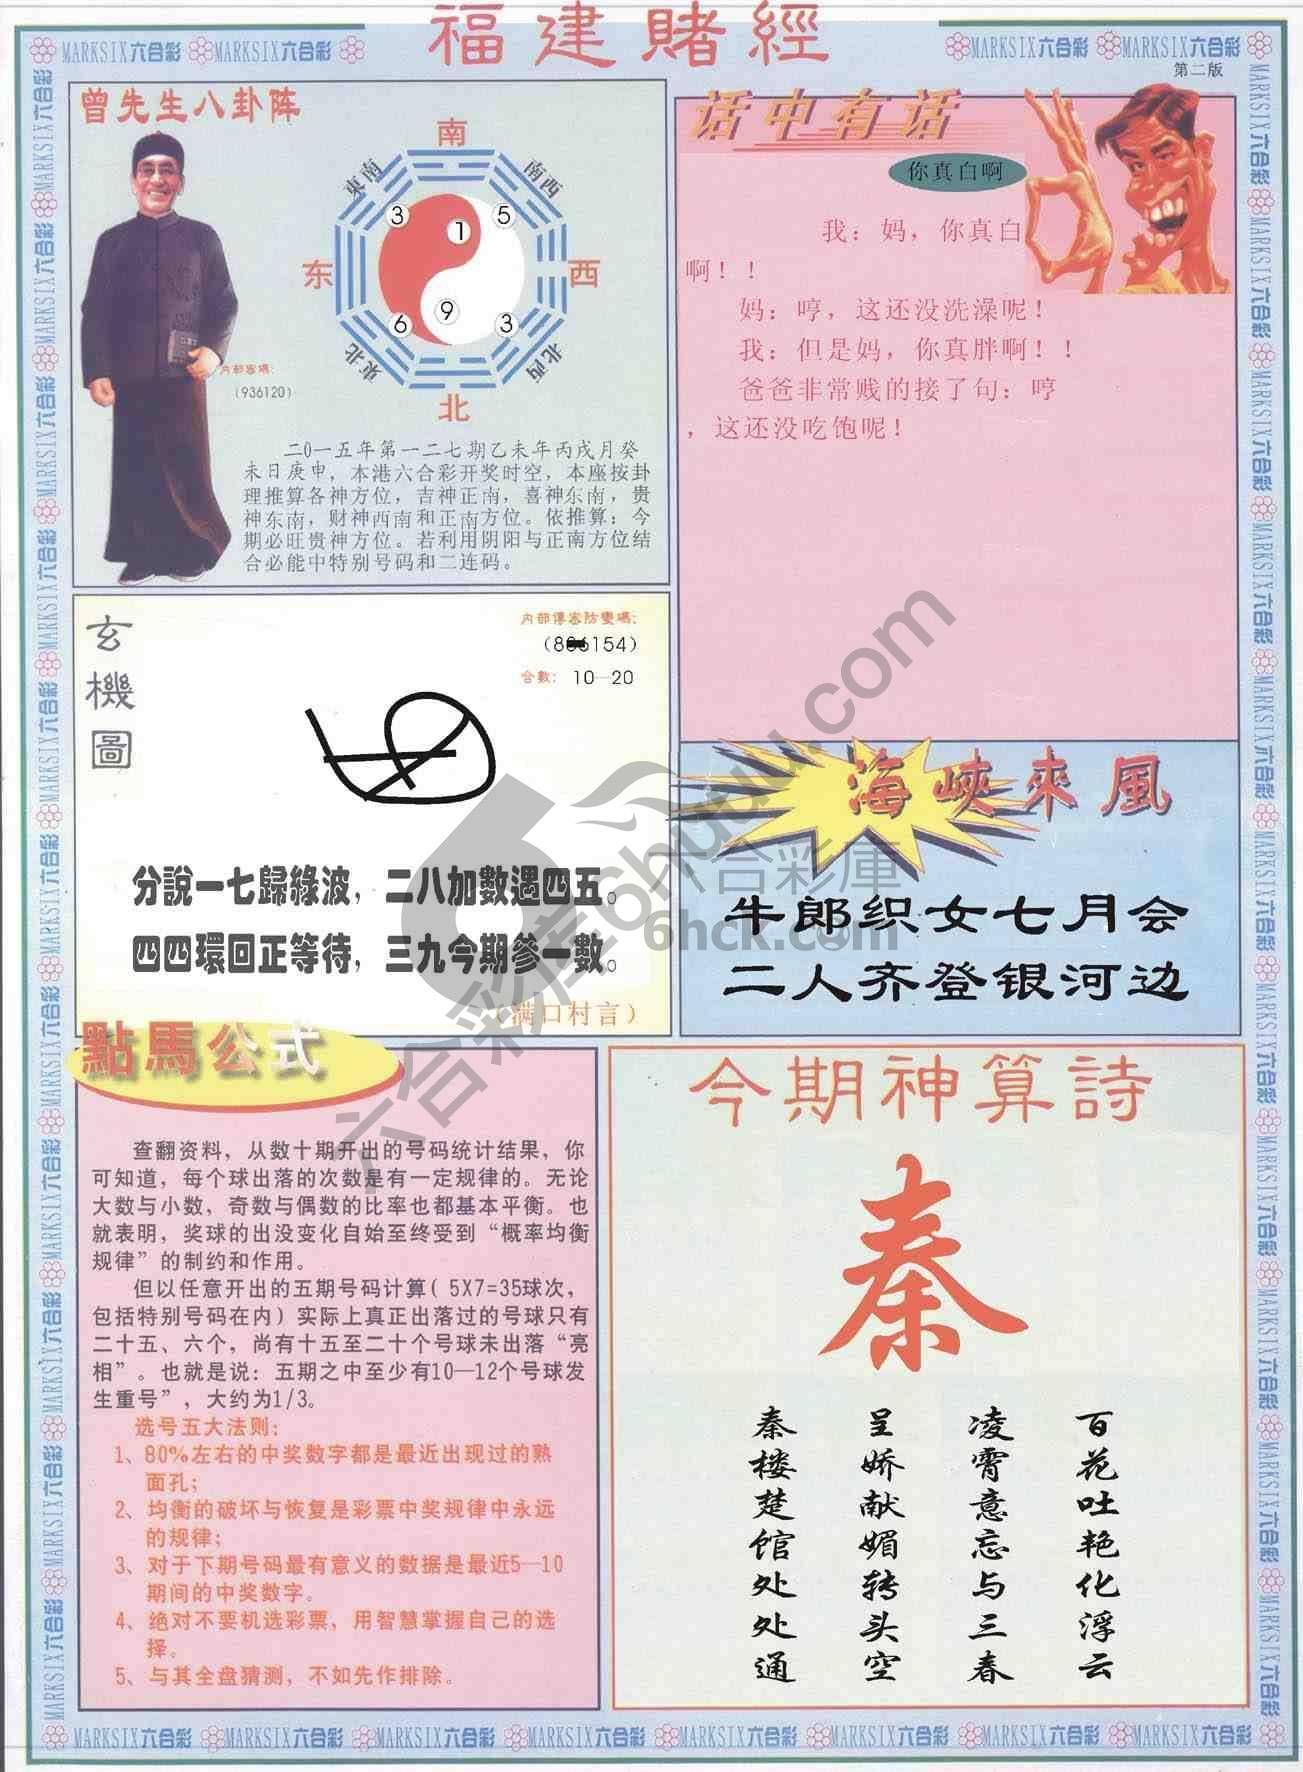 福建賭經
MARKSIX六合彩 MARKSIX六合彩 MARKSIX六合彩 MARKSIX六合彩
第二版
曾先生八卦阵
南
東南
南西
3
1
5
东
西
6
9
3
東北
北西
北
内部密碼:
(936120)
二0一五年第一二七期乙未年丙戌月癸
未日庚申，本港六合彩开奖时空，本座按卦
理推算各神方位，吉神正南，喜神东南，贵
神东南，财神西南和正南方位。依推算：今
期必旺贵神方位。若利用阴阳与正南方位结
合必能中特别号码和二连码。
话中有话
你真白啊
我：妈，你真白
啊！！
妈：哼，这还没洗澡呢！
我：但是妈，你真胖啊！！
爸爸非常贱的接了句：哼
，这还没吃饱呢！
玄機圖
内部傳密防變碼:
154)
合數: 10—20
分說一七歸綠波，二八加數遇四五。
四四環回正等待，三九今期參一數。
（满口村言）
海峽來風
牛郎织女七月会
二人齐登银河边
點馬公式
查翻资料，从数十期开出的号码统计结果，你
可知道，每个球出落的次数是有一定规律的。无论
大数与小数，奇数与偶数的比率也都基本平衡。也
就表明，奖球的出没变化自始至终受到“概率均衡
规律”的制约和作用。
但以任意开出的五期号码计算( 5X7=35球次，
包括特别号码在内）实际上真正出落过的号球只有
二十五、六个，尚有十五至二十个号球未出落“亮
相”。也就是说：五期之中至少有10—12个号球发
生重号”，大约为1/3。
选号五大法则:
1、80%左右的中奖数字都是最近出现过的熟
面孔;
2、均衡的破坏与恢复是彩票中奖规律中永远
的规律;
3、对于下期号码最有意义的数据是最近5—10
期间的中奖数字。
4、绝对不要机选彩票，用智慧掌握自己的选
择。
5、与其全盘猜测，不如先作排除。
今期神算詩
秦
百花吐艳化浮云
凌霄意忘与三春
呈娇献媚转头空
秦楼楚馆处处通
六合彩庫
6hck.com
六合彩库6hcku.com
MARKSIX六合彩 MARKSIX六合彩 MARKSIX六合彩 MARKSIX六合彩 MARKSIX六合彩 MARKSIX六合彩 MARKSIX六合彩 MARKSIX六合彩